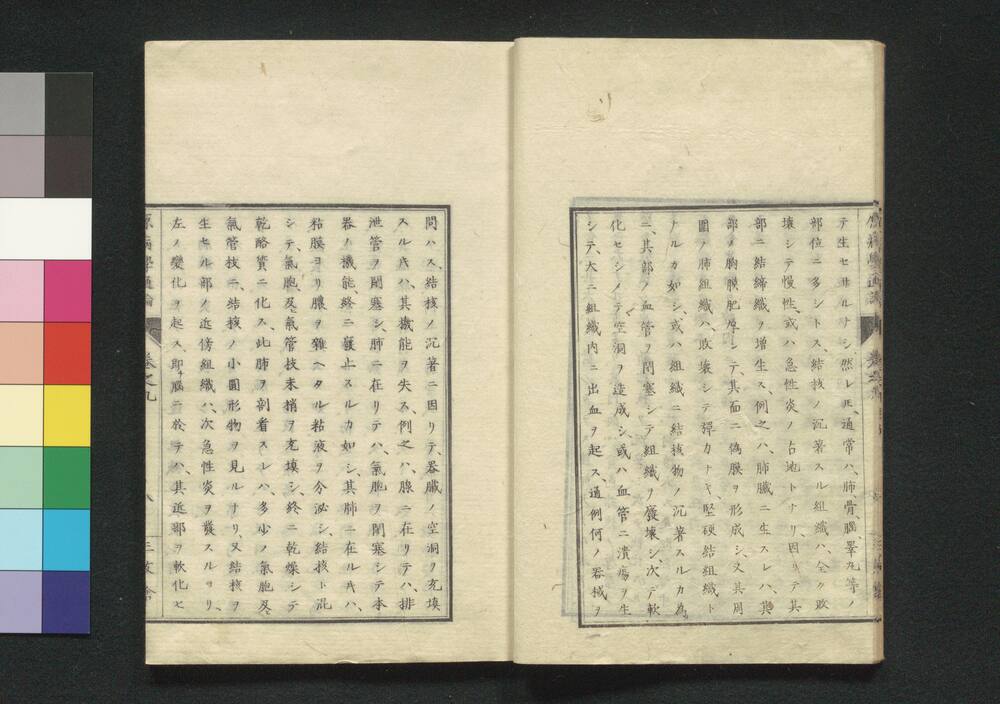 テ生セサルナシ、然レ𪜈、通常ハ、肺、骨、腦、睪丸等ノ
部位ニ多シトス、結核ノ沉著スル組織ハ、全ク敗
壊シテ慢性、或ハ急性炎ノ占地トナリ、因リテ其
部ニ結締織ヲ增生ス、例之ハ、肺臓ニ生スレハ、其
部ノ胸膜肥厚シテ、其面ニ偽膜ヲ形成シ、又其周
圍ノ肺組織ハ、敗壊シテ彈力ナキ、堅硬結組織ト
ナルカ如シ、或ハ組織ニ結核物ノ沉著スルカ為
ニ、其部ノ血管ヲ閉塞シテ組織ヲ廢壊シ、次テ軟
化セシメテ空洞ヲ造成シ、或ハ血管ニ潰瘍ヲ生
シテ、大ニ組織内ニ出血ヲ起ス、通例何ノ器械ヲ
問ハス、結核ノ沉著ニ因リテ、器臓ノ空洞ヲ充塡
スル𪜈ハ、其機能ヲ失ス、例之ハ、腺ニ在リテハ、排
泄管ヲ閉塞シ、肺ニ在リテハ、氣胞ヲ閉塞シテ本
器ノ機能、終ニ癈止スルカ如シ、其肺ニ在ル𪜈ハ、
粘膜ヨリ膿ヲ雜ヘタル粘液ヲ分泌シ、結核ト混
シテ、氣胞及氣管技末梢ヲ充塡シ、終ニ乾燥シテ
乾酪質ニ化ス、此肺ヲ剖看スレハ、多少ノ氣胞及
氣管技ニ、結核ノ小圓形物ヲ見ルナリ、又結核ヲ
生セル部ノ近傍組織ハ、次急性炎ヲ發スルヿリ、
左ノ變化ヲ起ス、即腦ニ於テハ、其近部ヲ軟化セ
原病學通論 卷之九 八 三友舎